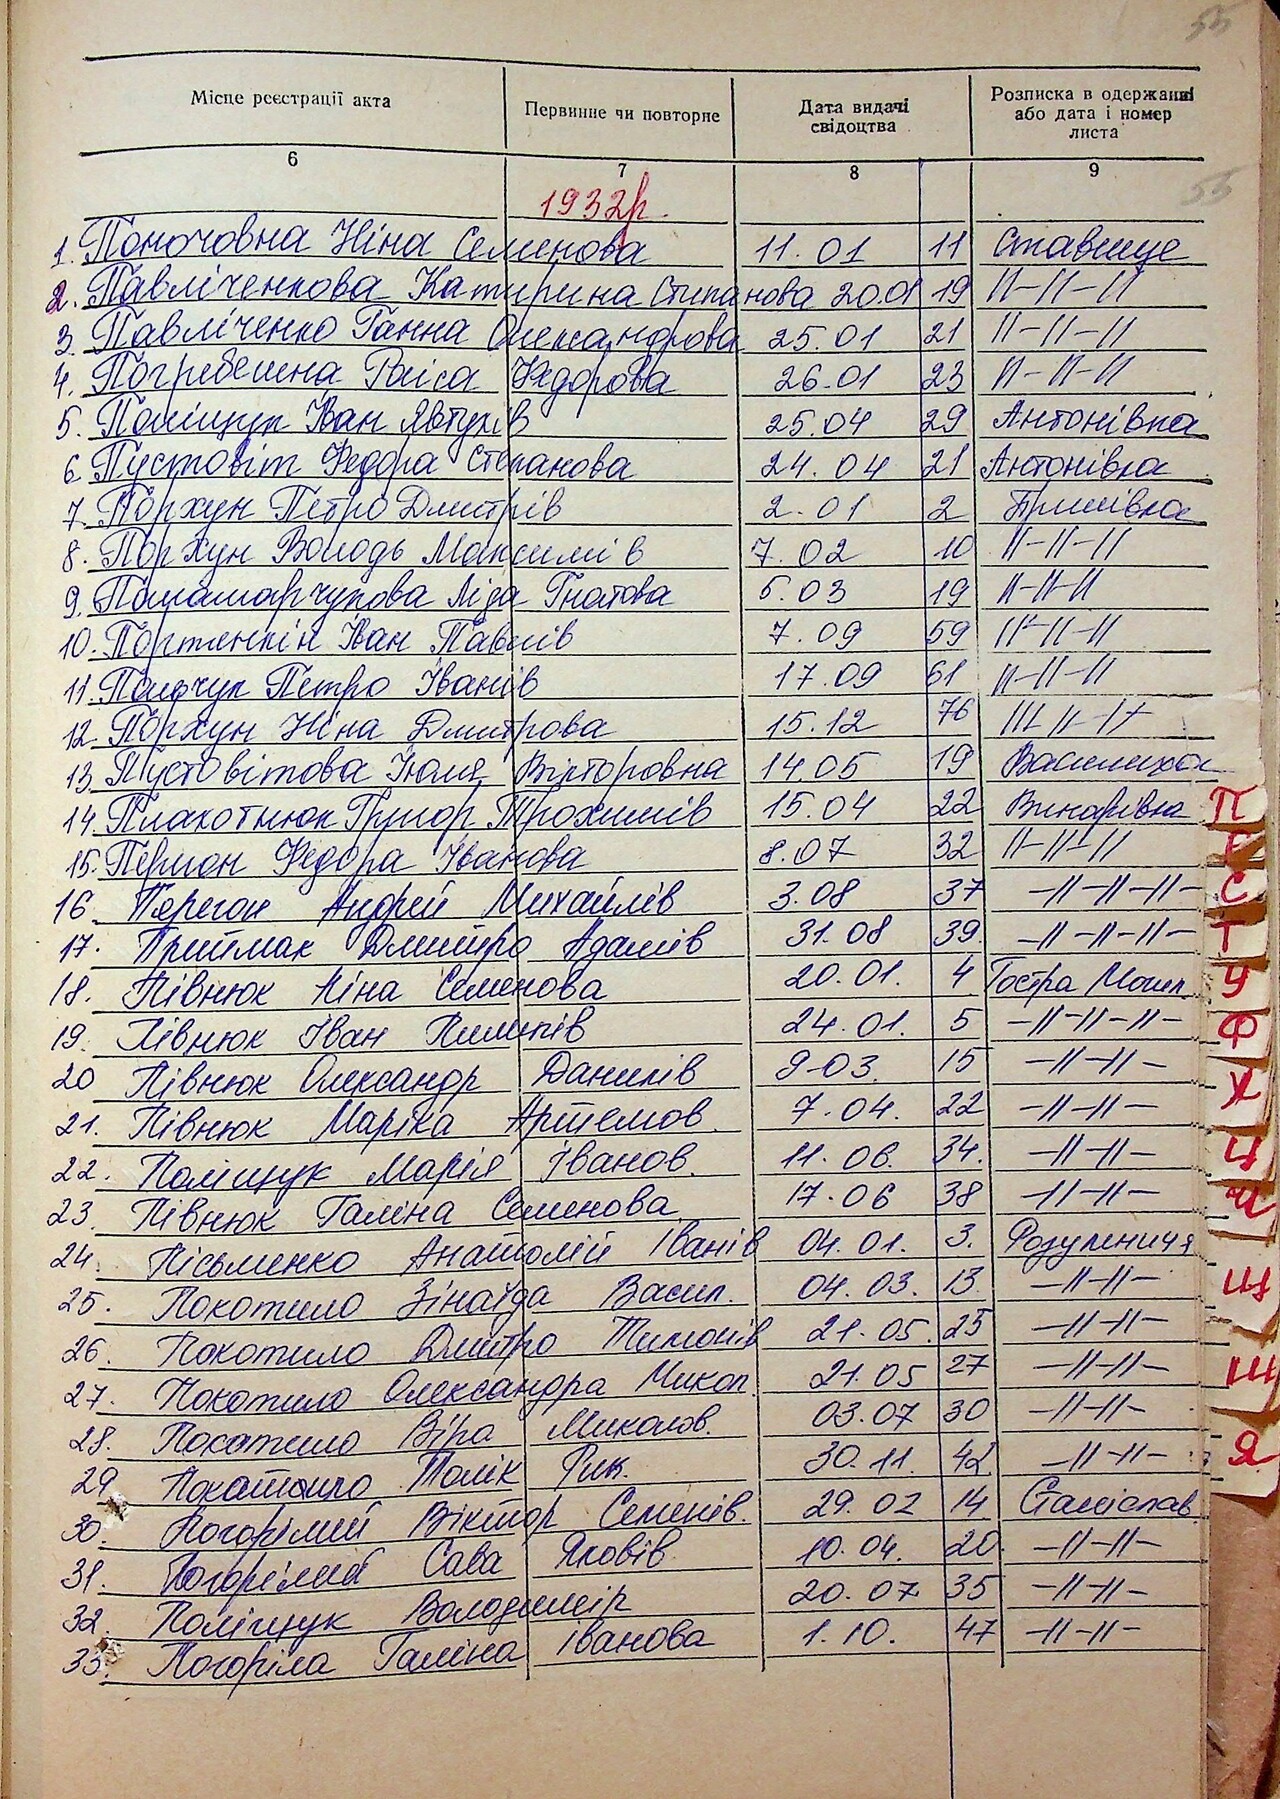 55
Місце реєстрації акта Первинне чи повторне Дата видачі свідоцтва Розписка в одержанні або дата і номер листа
6 7 8 9
55
1932р.
1. Поночовна Ніна Семенова 11.01 11 Ставище
2. Павліченкова Катирина Степанова 20.01 19 //-//-//
3. Павліченко Ганна Олександрова 25.01 21 //-//-//
4. Погребешна Раіса Федорова 26.01 23 //-//-//
5. Поліщук Іван Явтухів 25.04 29 Антонівка
6. Пустовіт Федора Степанова 24.04 21 Антонівка
7. Порхун Петро Дмитрів 2.01 2
8. Порхун Володь Максимів 7.02 10 //-//-//
9. Паламарчукова Ліда Гнатова 6.03 19 //-//-//
10. Іван Павлів 7.09 59 //-//-//
11. Петро Іванів 17.09 61 //-//-//
12. Порхун Ніна Дмитрова 15.12 76
13. Пустовітова Юля Вікторовна 14.05 19 Василиха
14. Плахотнюк Григор Трохимів 15.04 22 Винарівка
15. Федора Іванова 8.07 32 //-//-//
16. Перегон Андрей Михайлів 3.08 37 -//-//-//-
17. Приймак Дмитро Адамів 31.08 39. -//-//-//-
18. Півнюк Ніна Семенова 20.01. 4 Гостра Могил.
19. Півнюк Іван Пилипів 24.01. 5 -//-//-//-
20 Півнюк Олександр Данилів 9.03. 15 -//-//-
21. Півнюк Маріка Артемов. 7.04. 22 -//-//-
22. Поліщук Марія Іванов. 11.06. 34. -//-//-
23. Півнюк Галіна Семенова 17.06 38 -//-//-
24. Пісьменко Анатолій Іванів 04.01. 3. Розумниця
25. Покотило Зінаїда Васил. 04.03. 13. -//-//-
26. Покотило Дмитро Тимонів 21.05. 25 -//-//-
27. Покотило Олександра Микол. 21.05 27 -//-//-
28. Покотило Віра Миколов. 03.07 30 -//-//-
29. Покатило Толік 30.11. 42 -//-//-
30. Погорілий Віктор Семенів. 29.02 14 Станіслав
31. Погорілий Сава Яковів 10.04. 20. -//-//-
32. Поліщук Володимир 20.07 35 -//-//-
33. Погоріла Галіна Іванова 1.10. 47 -//-//-
П
С
Т
У
Ф
Х
Ц
Ч
Щ
Ш
Я